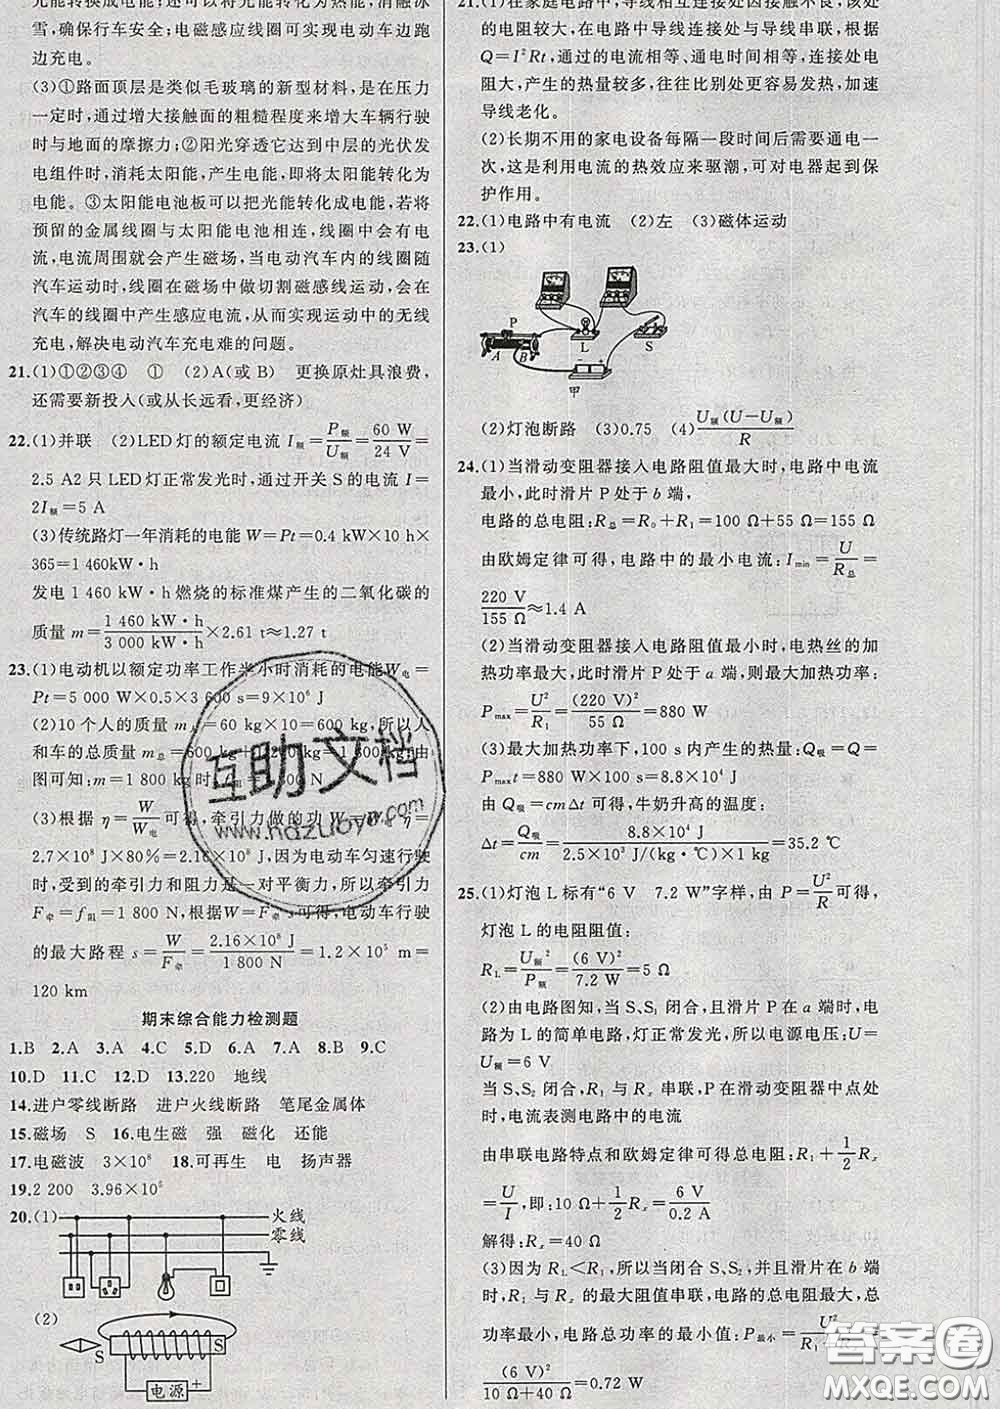 光能转换成电能;光能转化为热能,消融冰
雪,确保行车安全;电磁感应线圈可实现电动车边跑
边充电。
(3)①路面顶层是类似毛玻璃的新型材料,是在压力
一定时,通过增大接触面的粗糙程度来增大车辆行驶
时与地面的摩擦力;②阳光穿透它达到中层的光伏发
电组件时,消耗太阳能,产生电能,即将太阳能转化为
电能。③太阳能电池板可以把光能转化成电能,若将
预留的金属线圈与太阳能电池相连,线圈中会有电
流,电流周围就会产生磁场,当电动汽车内的线圈随
汽车运动时,线圈在磁场中做切割磁感线运动,会在
汽车的线圈中产生感应电流,从而实现运动中的无线
充电,解决电动汽车充电难的问题。
21.(1)①②③④ ① (2)A(或 B) 更换原灶具浪费,
还需要新投入(或从长远看,更经济)
22.(1)并联 (2)LED 灯的额定电流 I额=P额/U额=60 W/24 V=
2.5 A2 只 LED 灯正常发光时,通过开关 S 的电流 I=
2I额=5 A
(3)传统路灯一年消耗的电能 W=Pt=0.4 kW×10 h×
365=1 460kW·h
发电 1 460 kW·h 燃烧的标准煤产生的二氧化碳的
质量 m=1 460 kW·h/3 000 kW·h×2.61 t≈1.27 t
23.(1)电动机以额定功率工作半小时消耗的电能W电=
Pt=5 000 W×0.5×3 600 s=9×10⁶ J
(2)10 个人的质量 m人=60 kg×10=600 kg,所以人
和车的总质量 m总=600 kg+1 200 kg=1 800 kg,由
图可知:m=1 800 kg时,f=1 800 N
(3)根据 η=W/W电可得,牵引力做的功 W=W电η=
2.7×10⁸ J×80%=2.16×10⁸ J,因为电动车匀速行驶
时,受到的牵引力和阻力是一对平衡力,所以牵引力
F牵=f阻=1 800 N,根据W=F牵s可得,电动车行驶
的最大路程 s=W/F牵=2.16×10⁸ J/1 800 N=1.2×10⁵ m=
120 km
期末综合能力检测题
1.B 2.A 3.A 4.C 5.D 6.A 7.A 8.B 9.C
10.D 11.C 12.D 13.220 地线
14.进户零线断路 进户火线断路 笔尾金属体
15.磁场 S 16.电生磁 强 磁化 还能
17.电磁波 3×10⁸ 18.可再生 电 扬声器
19.2 200 3.96×10⁵
20.(1)
火线
零线
(2)
S
S
电源 +
21.(1)在家庭电路中,导线相互连接处因接触不良,该处
的电阻较大,在电路中导线连接处与导线串联,根据
Q=I²Rt,通过的电流相等、通电时间相等,连接处电
阻大,产生的热量较多,往往比别处更容易发热,加速
导线老化。
(2)长期不用的家电设备每隔一段时间后需要通电一
次,这是利用电流的热效应来驱潮,可对电器起到保
护作用。
22.(1)电路中有电流 (2)左 (3)磁体运动
23.(1)
P
A
B
L
S
-
+
甲
(2)灯泡断路 (3)0.75 (4)U额(U-U额)/R
24.(1)当滑动变阻器接入电路阻值最大时,电路中电流
最小,此时滑片 P 处于 b 端,
电路的总电阻:R总=R₀+R₁=100 Ω+55 Ω=155 Ω
由欧姆定律可得,电路中的最小电流:Imin=U/R总=
220 V/155 Ω≈1.4 A
(2)当滑动变阻器接入电路阻值最小时,电热丝的加
热功率最大,此时滑片 P 处于 a 端,则最大加热功率:
Pmax=U²/R₁=(220 V)²/55 Ω=880 W
(3)最大加热功率下,100 s内产生的热量:Q吸=Q=
Pmaxt=880 W×100 s=8.8×10⁴ J
由 Q吸=cmΔt 可得,牛奶升高的温度:
Δt=Q吸/cm=8.8×10⁴ J/2.5×10³ J/(kg·℃)×1 kg=35.2 ℃
25.(1)灯泡 L 标有“6 V 7.2 W”字样,由 P=U²/R可得,
灯泡 L 的电阻阻值:
RL=U额²/P额=(6 V)²/7.2 W=5 Ω
(2)由电路图知,当 S、S₁ 闭合,且滑片 P 在 a 端时,电
路为 L 的简单电路,灯正常发光,所以电源电压:U=
U额=6 V
当 S、S₂ 闭合,R₁ 与 Rx 串联,P在滑动变阻器中点处
时,电流表测电路中的电流
由串联电路特点和欧姆定律可得总电阻:R₁+1/2Rx
=U/I,即:10 Ω+1/2Rx=6 V/0.2 A
解得:Rx=40 Ω
(3)因为 RL<R₁,所以当闭合 S、S₂,并且滑片在 b 端
时,R₁与 Rx 的最大阻值串联,电路的总电阻最大,总
功率最小,电路总功率的最小值:P最小=U²/R₁+Rx=
(6 V)²/10 Ω+40 Ω=0.72 W
互助文档
www.hdzuoye.com
答案圈
MXQE.COM